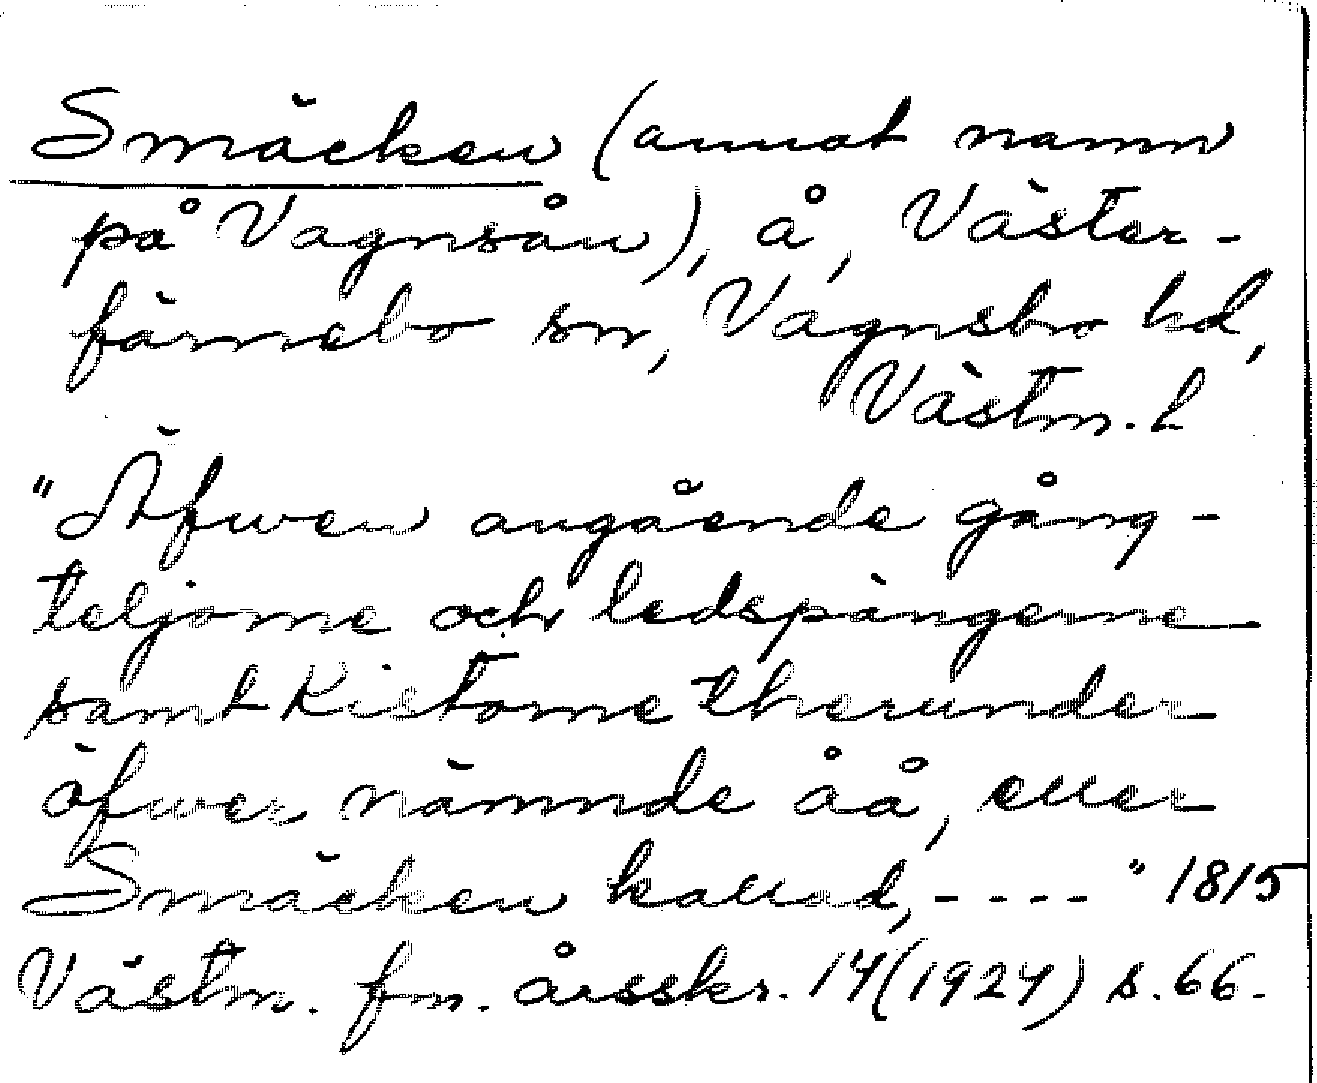 Smäcken (annat namn
på Vagnsån), å, Väster-
färnebo sn, Vagnsbro hd,
Västm. l
"Äfwen angående gång-
teljorne och ledspängerne
samt Kistorne therunder
öfwer nämnde åå, eller
Smäcken kallad, - - - - " 1815
Västm. fm. årsskr. 14 (1924) s. 66.